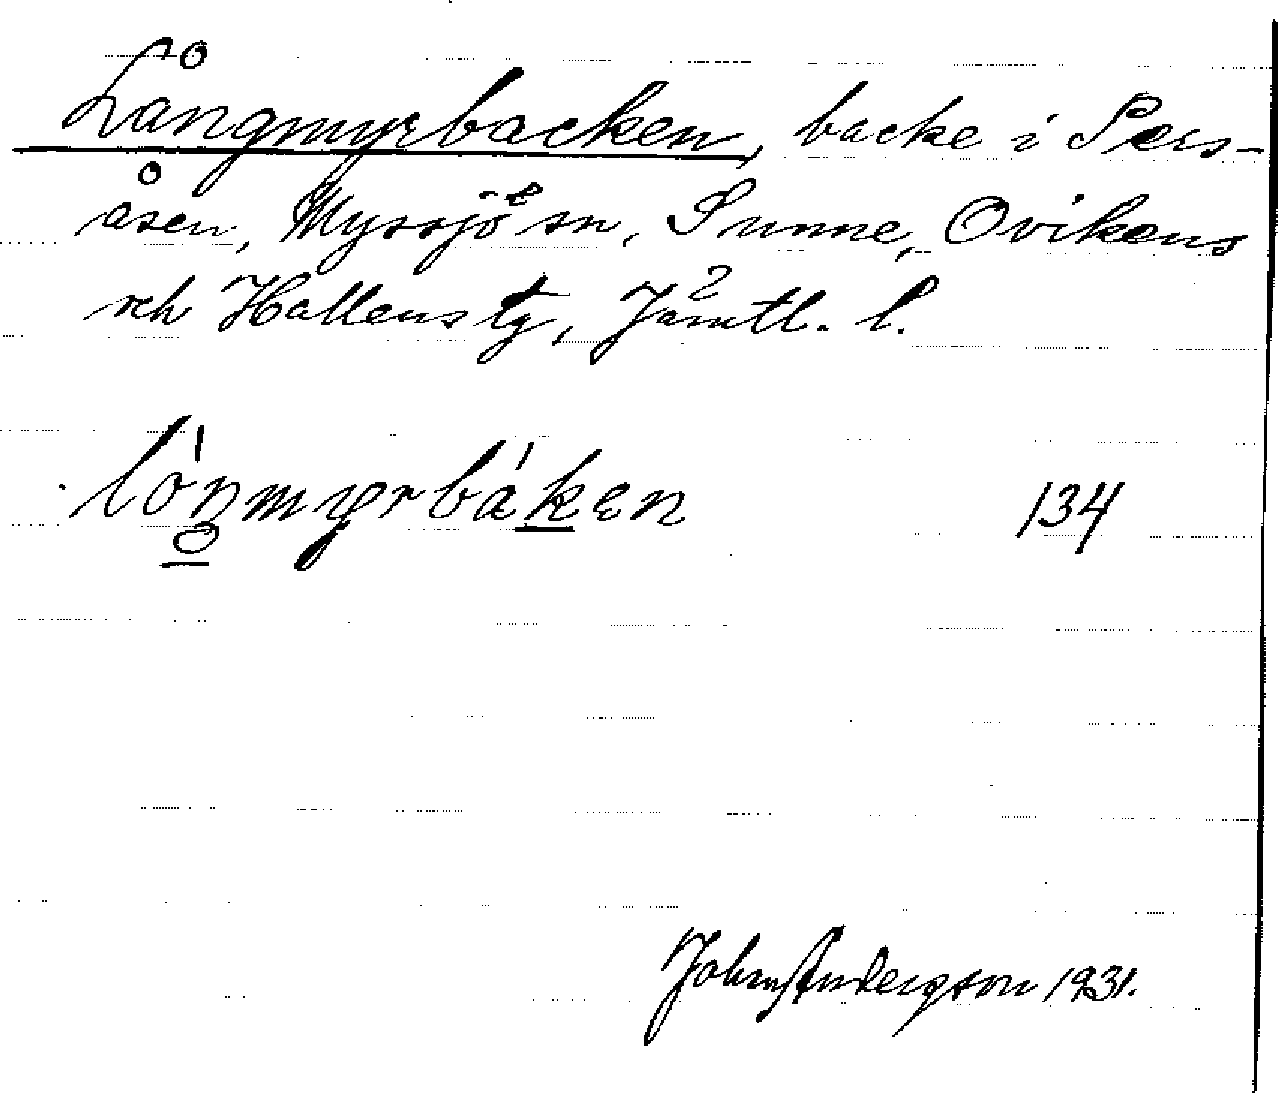 Långmyrbacken, backe i Pers-
åsen, Myssjö sn, Sunne, Ovikens
och Hallens tg, Jämtl. l.
134
John Anderson 1931.